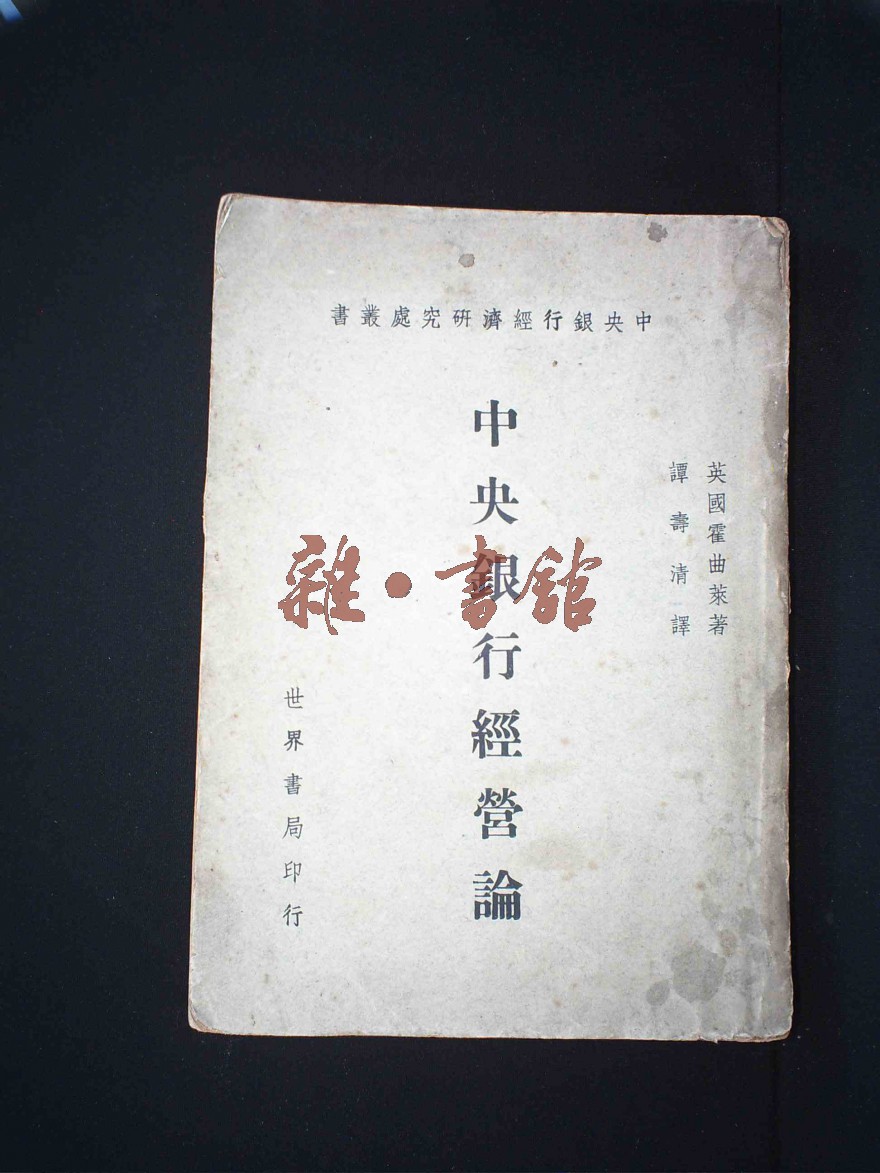 中央銀行經濟研究處叢書
英國霍曲萊著
譚壽清譯
中央銀行經營論
世界書局印行
雜·書館